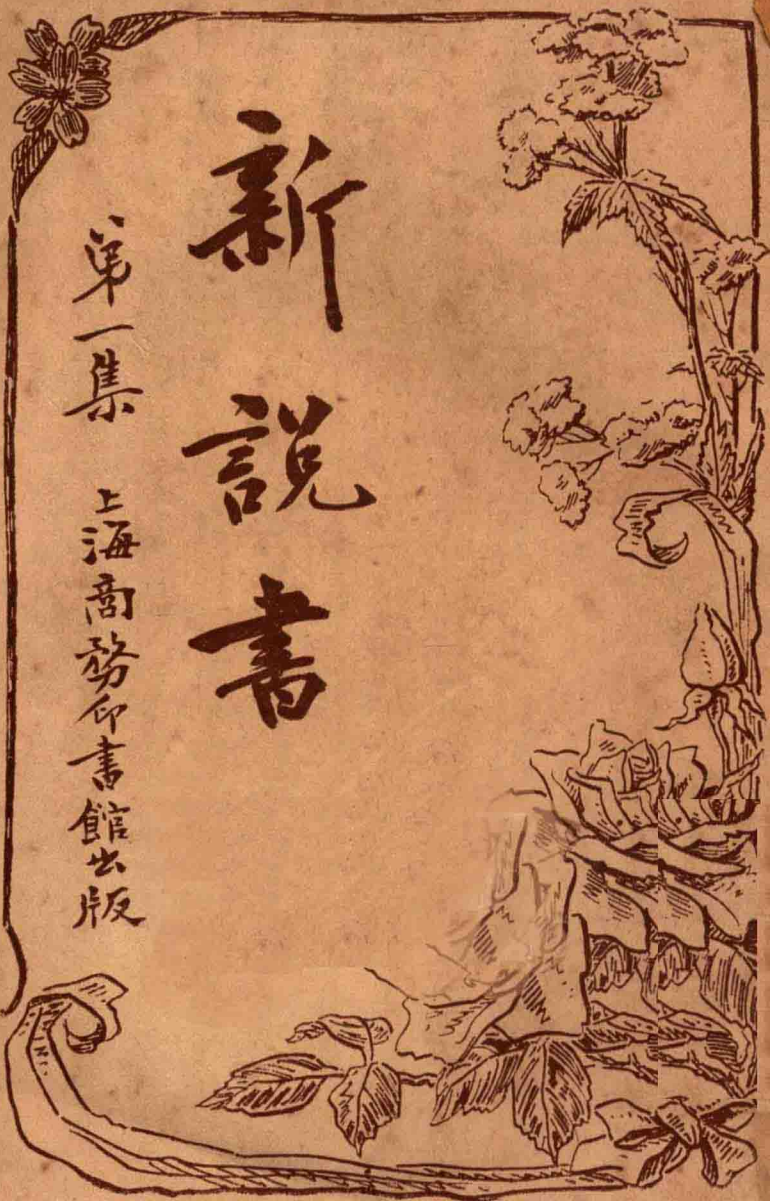 新說書
第一集 上海商務印書館出版